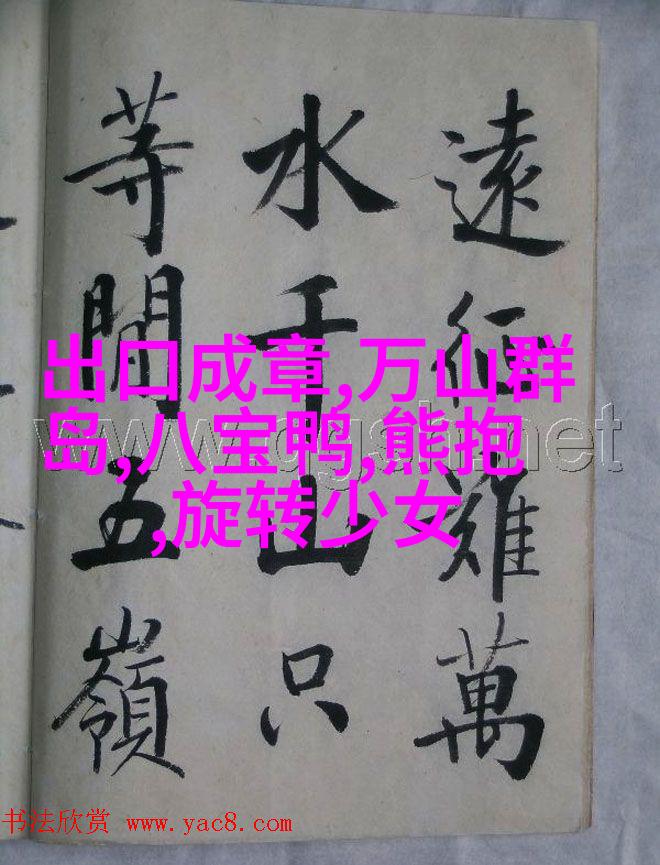 遠征難萬
水千山只
等閒五嶺
出口成章,万山群
岛,八宝鸭,熊抱
,旋转少女
书法欣赏 www.yac8.com